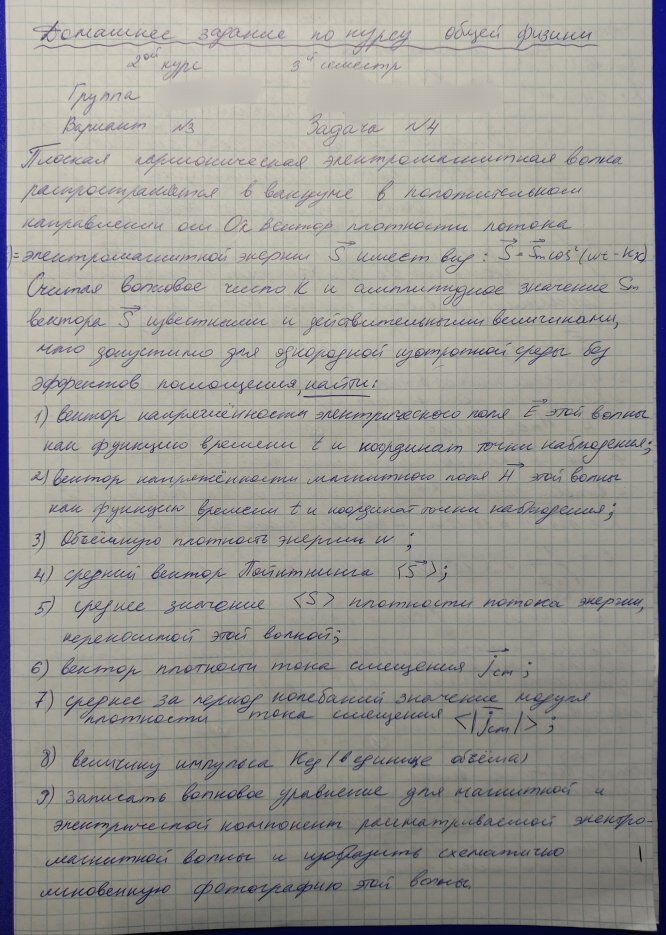 Домашнее задание по курсу общей физики
2ой курс 3й семестр
Группа
Вариант №3 Задача №4
Плоская гармоническая электромагнитная волна
распространяется в вакууме в положительном
направлении оси Ox. Вектор плотности потока
электромагнитной энергии S⃗ имеет вид: S⃗ = S⃗m cos²(ωt - kx)
Считая волновое число k и амплитудное значение Sm
вектора S⃗ известными и действительными величинами,
что допустимо для однородной изотропной среды без
эффектов поглощения, найти:
1) вектор напряжённости электрического поля E⃗ этой волны
как функцию времени t и координат точки наблюдения;
2) вектор напряжённости магнитного поля H⃗ этой волны
как функцию времени t и координат точки наблюдения;
3) Объёмную плотность энергии w ;
4) средний вектор Пойнтинга <S⃗>;
5) среднее значение <S> плотности потока энергии,
переносимой этой волной;
6) вектор плотности тока смещения j⃗см ;
7) среднее за период колебаний значение модуля
плотности тока смещения <|j⃗см|> ;
8) величину импульса Kед (в единице объёма)
9) Записать волновое уравнение для магнитной и
электрической компонент рассматриваемой электро-
магнитной волны и изобразить схематично
мгновенную фотографию этой волны.
1